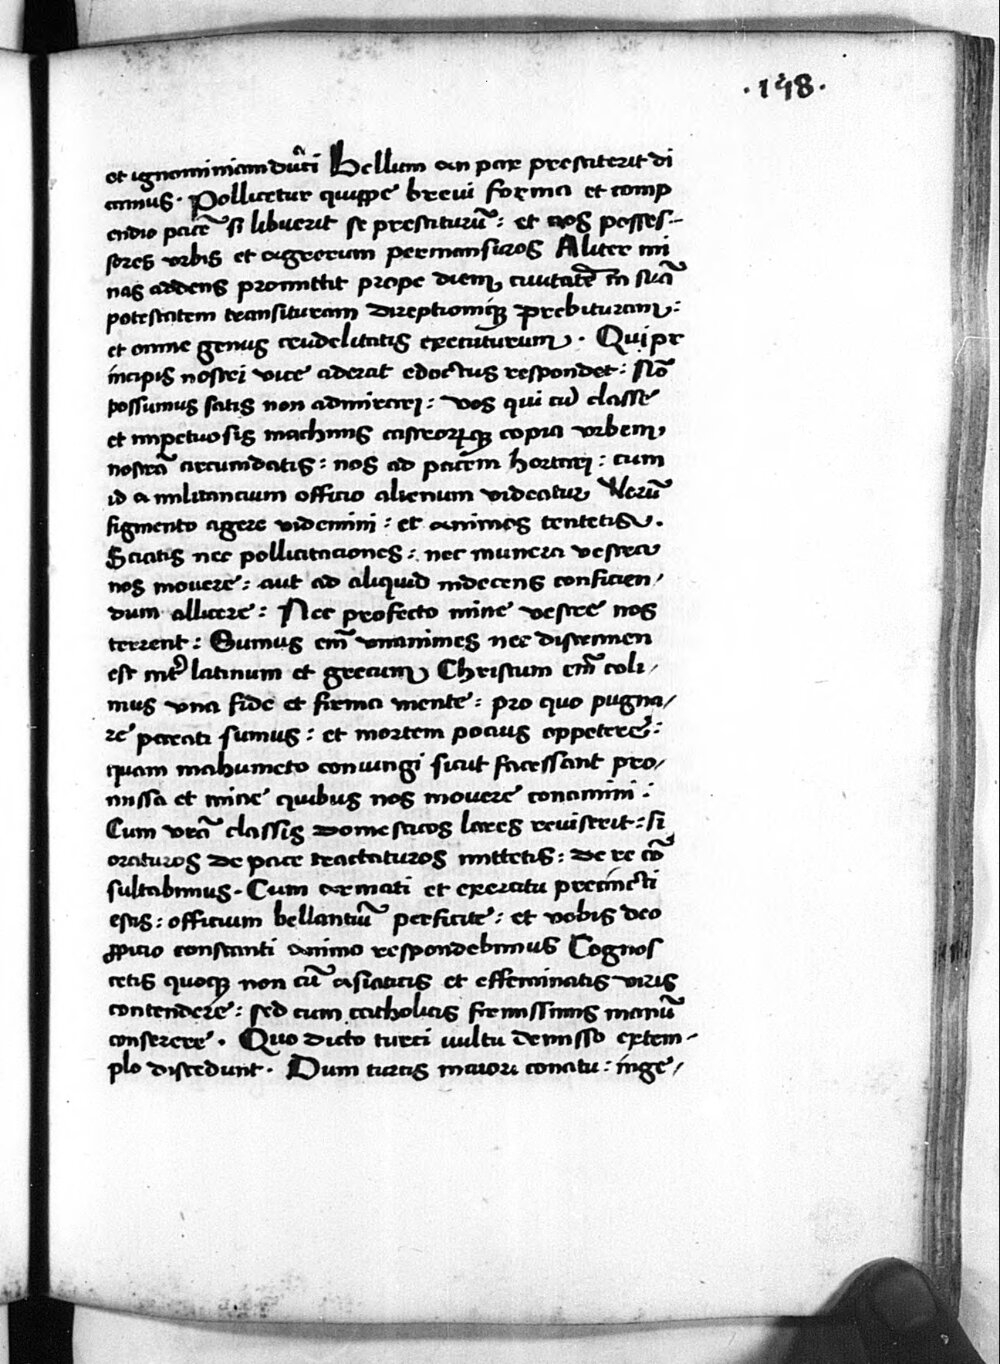 ·148·
et ignominiam dūci Bellum an pax prestiterit di
camus. Pollicetur quippe brevi forma et comp
endio pacē si libuerit se prestiturū: et nos posses-
sores urbis et agrorum permansuros Aliter mi
nas addens promittit prope diem civitatē in suā
potestatem transituram direptionique prebituram:
et omne genus crudelitatis executurum. Qui pr
incipis nostri vice aderat edoctus respondet: Nō
possumus satis non admirari: vos qui cū classe
et impetuosis machinis castrorumque copia urbem
nostrā circumdatis: nos ad pacem hortari: cum
id a militancium officio alienum videatur Verū
figmento agere videmini: et animos tentetis.
Sciatis nec pollicitaciones: nec munera vestra
nos movere: aut ad aliquid indecens conficien/
dum allicere: Nec profecto mine vestre nos
terrent: Sumus em̄ unanimes nec discrimen
est int̄ latinum et grecum Christum em̄ coli/
mus una fide et firma mente: pro quo pugna/
re parati sumus: et mortem pocius appetere:
quam mahumeto coniungi sicut facessant pro/
missa et mine quibus nos movere conamini:
Cum vr̄a classis domesticos lares reviserit: si
oraturos de pace tractaturos mittetis: de re cō
sultabimus. Cum armati et exercitu precincti
estis: officium bellantiū perficite: et vobis deo
ꝓpicio constanti animo respondebimus Cognos
cetis quoque non cū asiaticis et effeminatis viris
contendere: sed cum catholicis firmissimis manū
conserere. Quo dicto turci vultu demisso extem-
plo discedunt. Dum turcis maiori conatu: inge/